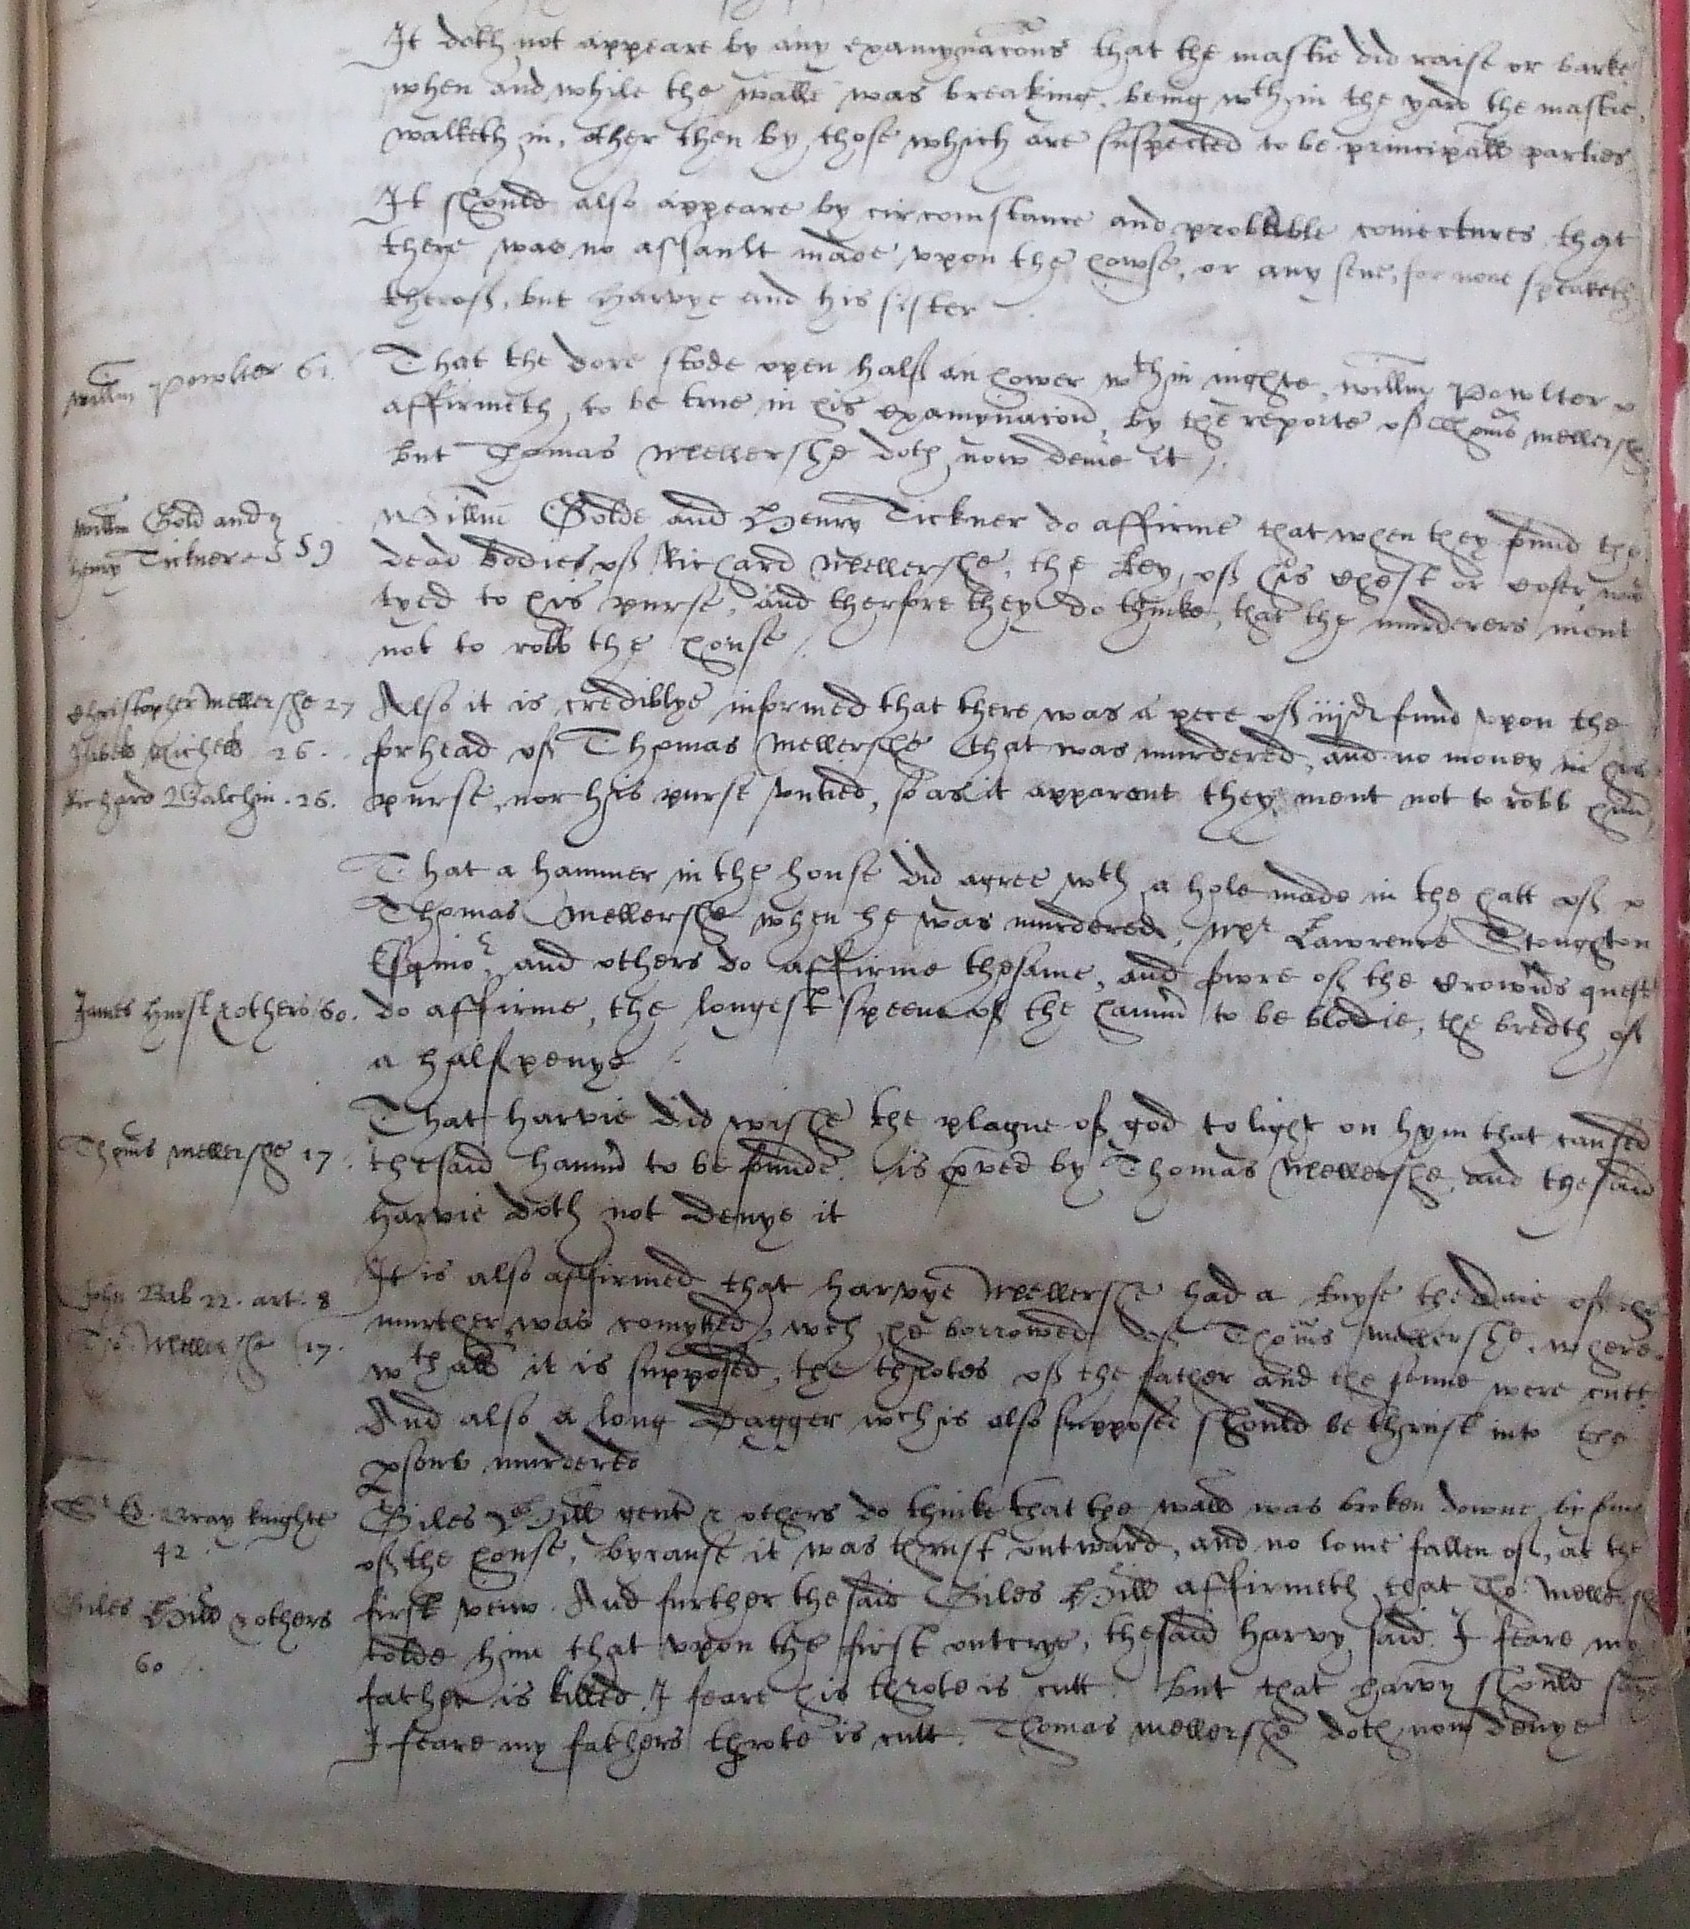 It doth not appeare by any examynacons that the mastie did raise or barke
when and while the walle was breaking, being wthin the yard the mastie
walketh in, other then by those which are suspected to be principall parties
It should also appeare by circomstance and probable coniectures that
there was no assault made vpon the howse, or any sene, for none speaketh
therof, but Harvye and his sister
Willm Powlter 61.
That the dore stode open half an hower wthin nighte, Willm Powlter
affirmeth to be true in his examynacon, by the reporte of Thoms Mellersh
but Thomas Mellershe doth now denie it /.
Willm Gold and
Henry Tickner 59
Willm Golde and Henry Tickner do affirme that when they fund the
dead bodies of Richard Mellershe, the key of his chest or cofer was
tyed to his purse, and therfore they do thinke, that the murderers ment
not to robb the house /.
Christopher Mellershe 27
Richell 26.
Richard Balchin. 26.
Also it is crediblye informed that there was a pece of iiijd fund vpon the
forhead of Thomas Mellershe that was murdered, and no money in his
purse, nor his purse vntied, so as it apparent they ment not to robb him
That a hammer in the house did agree wth a hole made in the hatt of
Thomas Mellershe when he was murdered, Mr Lawrence Stoughton
Esquior and others do affirme thesame, and fowre of the crown's quest
James Hurst & others 60.
do affirme, the longest speene of the hammr to be blodie, the bredth of
a halfpenye /.
That Harvie did wishe the plague of god to light on hym that caused
Thoms Mellershe 17.
thesaid hammr to be funde. is pved by Thomas Mellershe, and thesaid
Harvie doth not denye it
John Bab 22. art. 8
Tho. Mellershe 17.
It is also affirmed that Harvye Mellershe had a knyfe the daie of the
murther was comytted, wch he borrowed of Thoms Mellershe. where
wthall it is supposed, the throtes of the father and the sonne were cutt.
And also a long dagger wch is also supposed should be thrust into the
psons murdered
Sr E. Bray knighte
42.
Giles Hill & others
60 /.
Giles Hill gent & others do thinke that the wall was broken downe by some
of the house, bycause it was thrust outward, and no lome fallen of, at the
first veiw. And further the said Giles Hill affirmeth that Tho: Mellershe
tolde him that vpon the first outcrye, thesaid Harvy said. I feare my
father is killed I feare his throte is cutt. But that Harvy should saye
I feare my fathers throte is cutt. Thomas Mellershe doth now denye